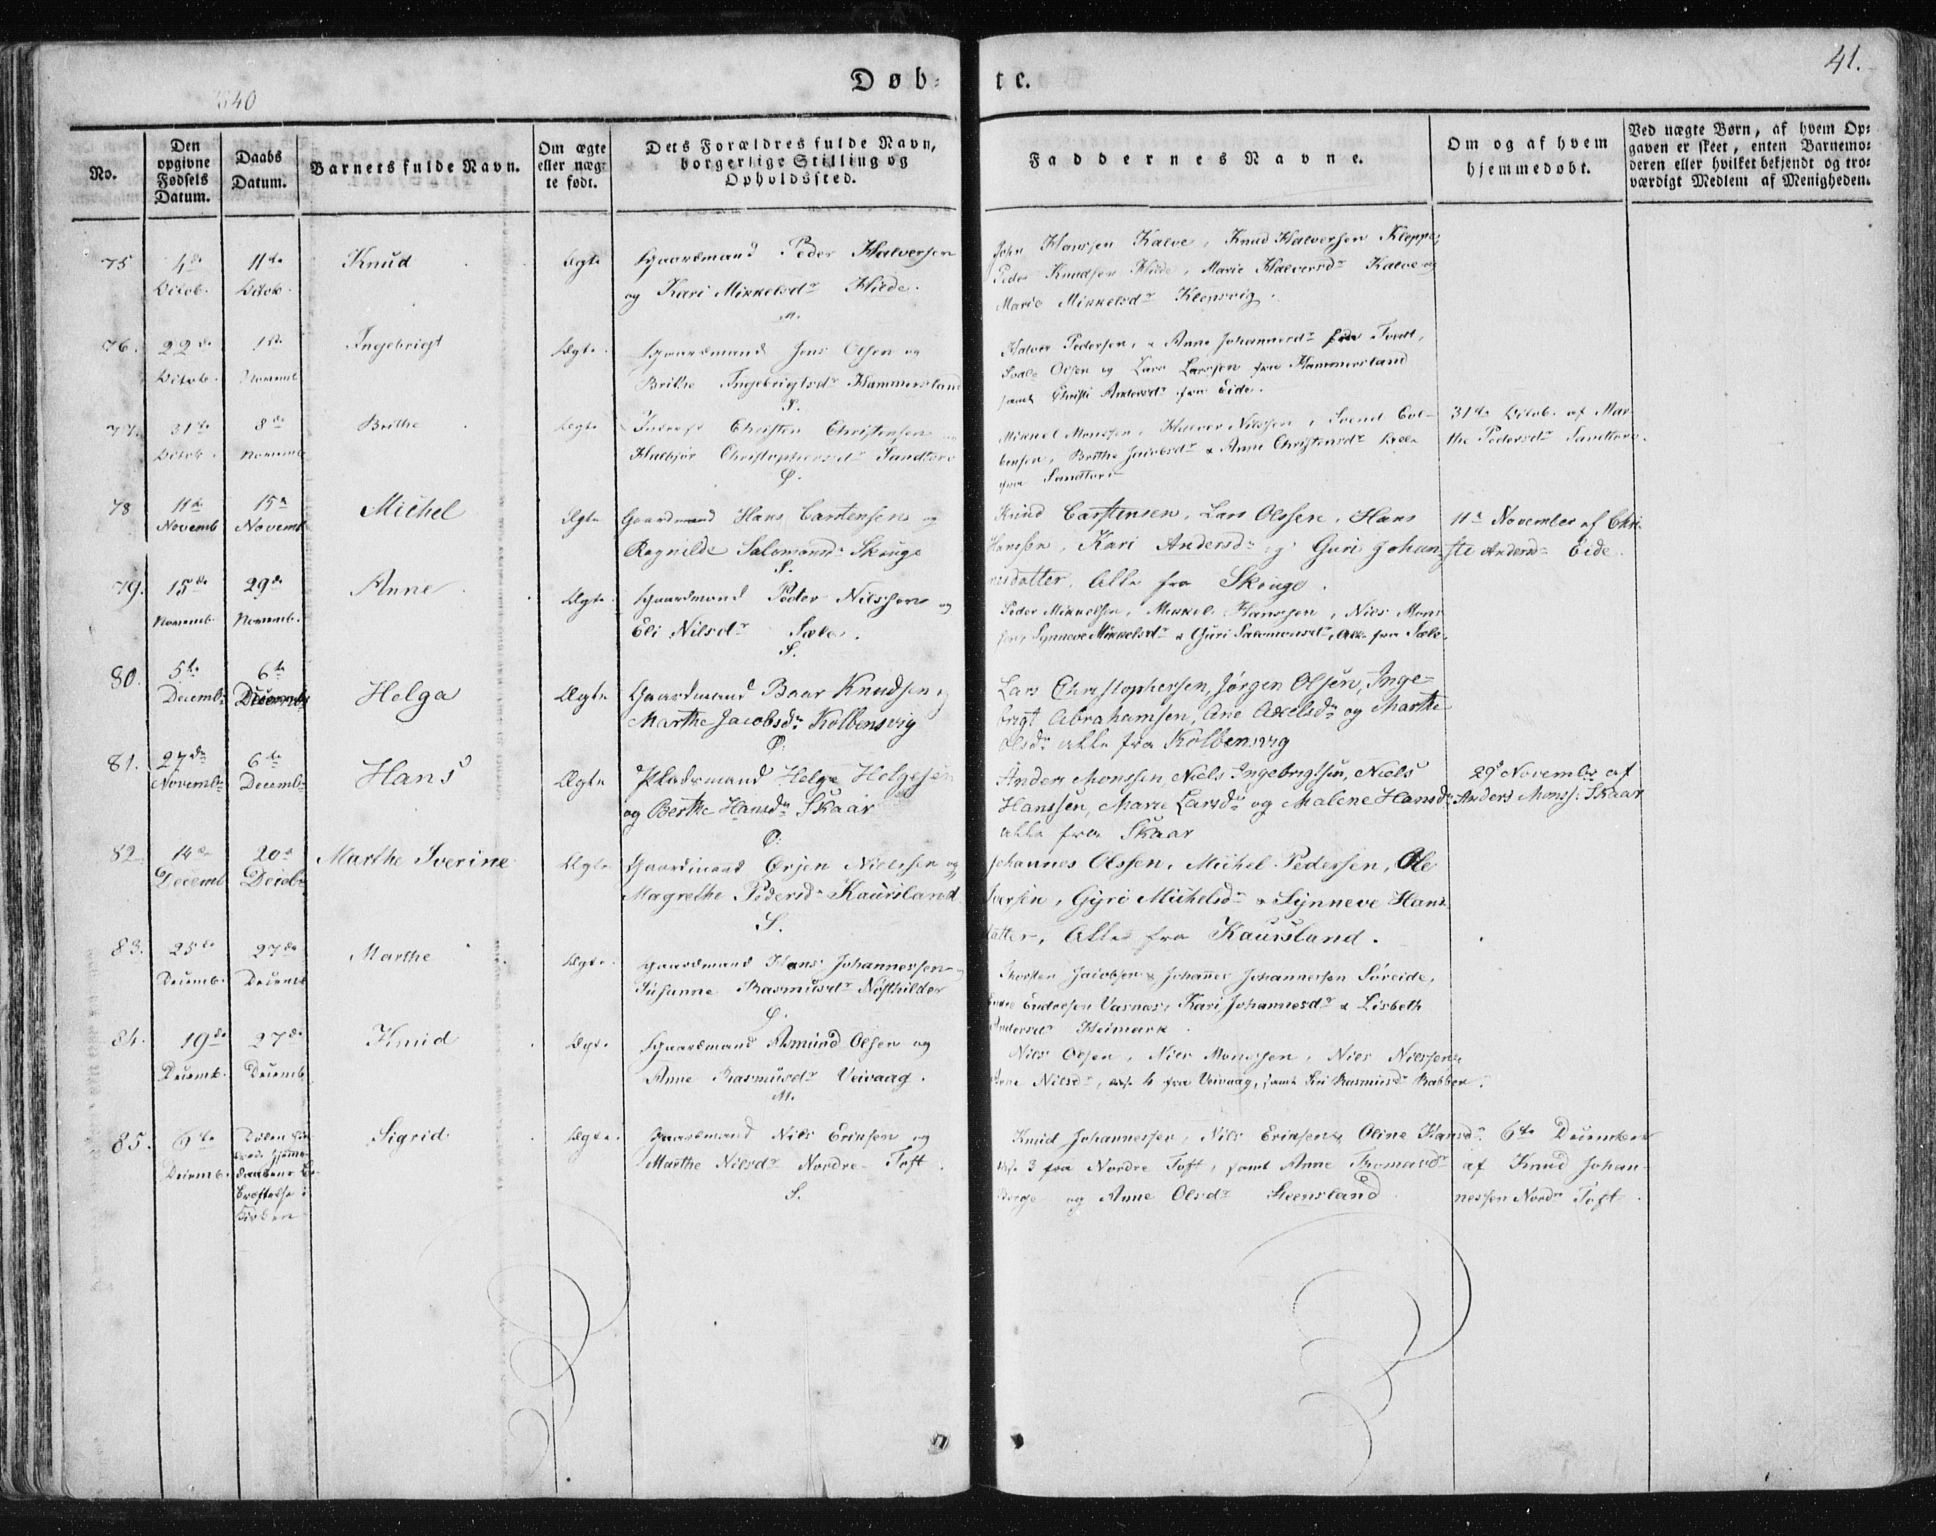 Døb-
te.
41.
No.
Den opgivne Fødsels Datum.
Daabs Datum.
Barnets fulde Navn.
Om ægte eller uægte født.
Dets Forældres fulde Navn, borgerlige Stilling og Opholdssted.
Faddernes Navne.
Om og af hvem hjemmedøbt.
Ved uægte Børn, af hvem Op-
gaven er skeet, enten Barnemo-
deren eller hvilket bekjendt og tro-
værdigt Medlem af Menigheden.
75 4de Octob. 11te Octob. Knud Ægte Gaardmand Peder Halversen
og Kari Mikkelsdr Hilde.
John Hanssen Kalve, Knud Halversen Kleppe,
Peder Knudsen Hilde, Marie Halversdr Kalve og
Marie Mikkelsdr Klepsvig.
76. 22de Octob. 1ste Novemb Ingebrigt Ægte Gaardmand Jens Olsen og
Brithe Ingebrigtsdr Hammersland
S.
Halver Pedersen, & Anne Johannesdr fra Tvedt,
Olsen og Lars Larssen fra Hammersland
samt Christi Andersdr fra Eide.
77. 31te Octob. 8de Novemb Brithe Ægte Christen Christensen og
Christophersdr Sandtorv
Mikkel Monssen, Halver Nilssen, Svend Col-
bensen, Brithe Jacobsdr & Anne Christensdr
fra Sandtorv
31te Octob. af Mar-
the Pedersdr Sandtorv.
78 11te Novemb 15de Novemb Michel Ægte Gaardmand Hans Carstensen og
Ragnilde Salomonsdr Skouge
S.
Knud Carstensen, Lars Olssen, Hans
Hanssen, Kari Andersdr og Guri Johan-
nesdatter, Alle fra Skouge.
11te November af Chri-
sti Andersdr Eide.
79. 15de Novemb. 29de Novemb. Anne Ægte. Gaardmand Peder Nilssen og
Eli Nilsdr Sæle.
S.
Peder Mikkelsen, Mikkel Hanssen, Niels Mons
sen, Synneve Mikkelsdr & Guri Salomonsdr, Alle fra Sæle.
80. 5te Decembr 6te Decembr Helga Ægte Gaardmand Baar Knudsen og
Marthe Jacobsdr Kolbensvig
Lars Christophersen, Jørgen Olsen, Inge-
brigt Abrahamsen, Ane Axelsdr og Marthe
Olsdr alle fra Kolbensvig
81. 27de Novembr 6te Decembr Hans Ægte Pladsmand Helge Helgesen
og Berthe Hansdr Skaar
Anders Monssen, Niels Ingebrigtsen, Niels
Hanssen, Marie Larsdr og Malene Hansdr
alle fra Skaar
29de Novembr af
Anders Monss: Skaar
82. 14de Decemb 20de Decebr Marthe Iverine Ægte Gaardmand Ørjen Nielssen og
Magrethe Pedersd. Kaursland
S.
Johannes Olssen, Michel Pedersen, Ole
Gyri Michelsdr & Synneve Hans
datter, Alle fra Kaursland.
83. 25de Decemb. 27de Decemb Marthe Ægte. Gaardmand Hans Johannessen og
Susanne Rasmusdr Nøsthilder
Thorsten Jacobsen & Johannes Johannessen Søreide,
Endresen Vasnæs, Kari Johannesdr & Lisbeth
Andersdr Heimark.
84. 19de Decemb. 27de Decemb Knud Ægte. Gaardmand Asmund Olsen og
Anne Rasmusdr Veivaag.
M.
Nils Olsen, Niels Monssen, Niels Nielssen
Anne Nilsdr, alle 4 fra Veivaag, samt Siri Rasmusdr Rabben.
85. 6te Decemb. Sigrid Ægte. Gaardmand Nils Erinsen og
Marthe Nilsdr Nordre Toft.
S.
Knud Johannessen, Nils Erinsen, Oline Hansdr
alle 3 fra Nordre Toft, samt Anne Thomasdr
Berge og Anne Olsdr Steensland
6te December
af Knud Johan-
nessen Nordre Toft.